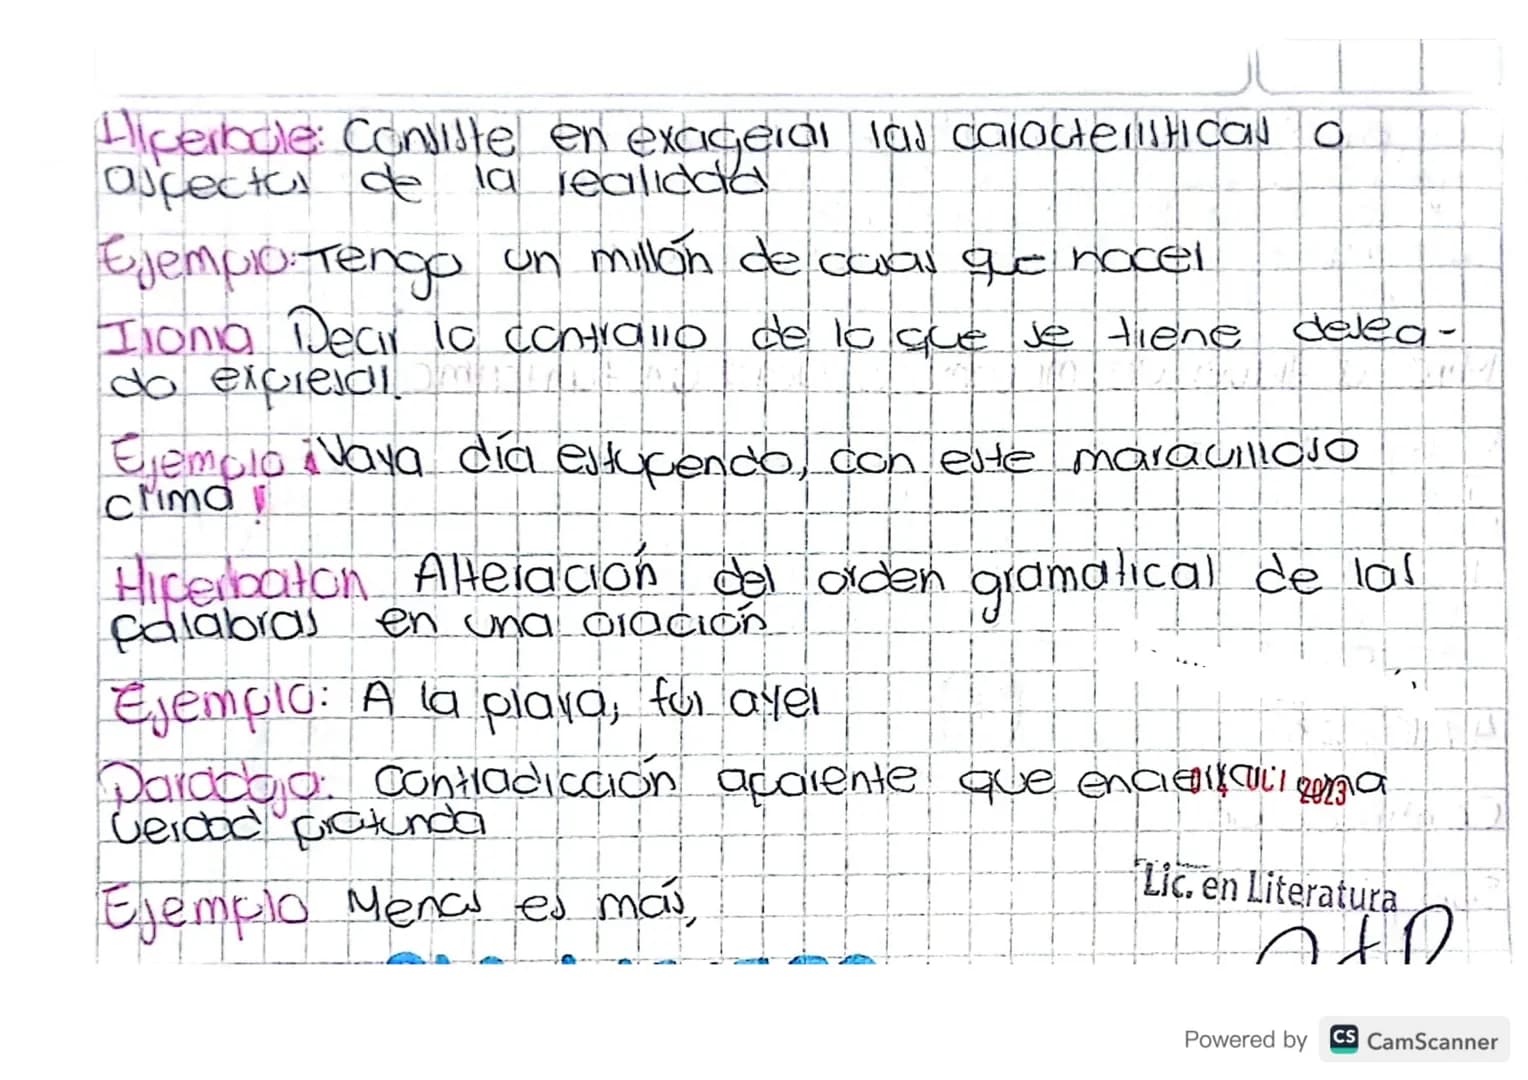 Hiperbole: Consiste en exagerar las caracteristicas o
aspectos de la realidad
Ejemplo: Tengo un millón de cosas que hacer
Ironia Decir lo contrario de lo que se tiene desea-
do expresar.
Ejemplo ¡Vaya día estupendo, con este maravilloso
clima!
Hiperbaton Alteración del orden gramatical de las
palabras en una oración
Ejemplo: A la playa, fui ayer
Paradoja: Contradicción aparente que encierra una
verdad profunda
2023
Lic. en Literatura
Ejemplo Menos es más,
Powered by CS CamScanner